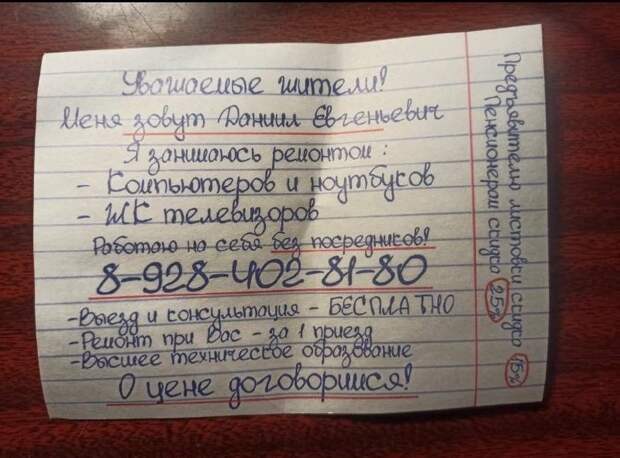 Уважаемые жители!
Меня зовут Даниил Евгеньевич
Я занимаюсь ремонтом :
- Компьютеров и ноутбуков
- ЖК телевизоров
Работаю на себя без посредников!
8-928-402-81-80
-Выезд и консультация - БЕСПЛАТНО
-Ремонт при Вас - за 1 приезд
-Высшее техническое образование
О цене договоримся!
Предъявителю листовки скидка 15%
Пенсионерам скидка 25%